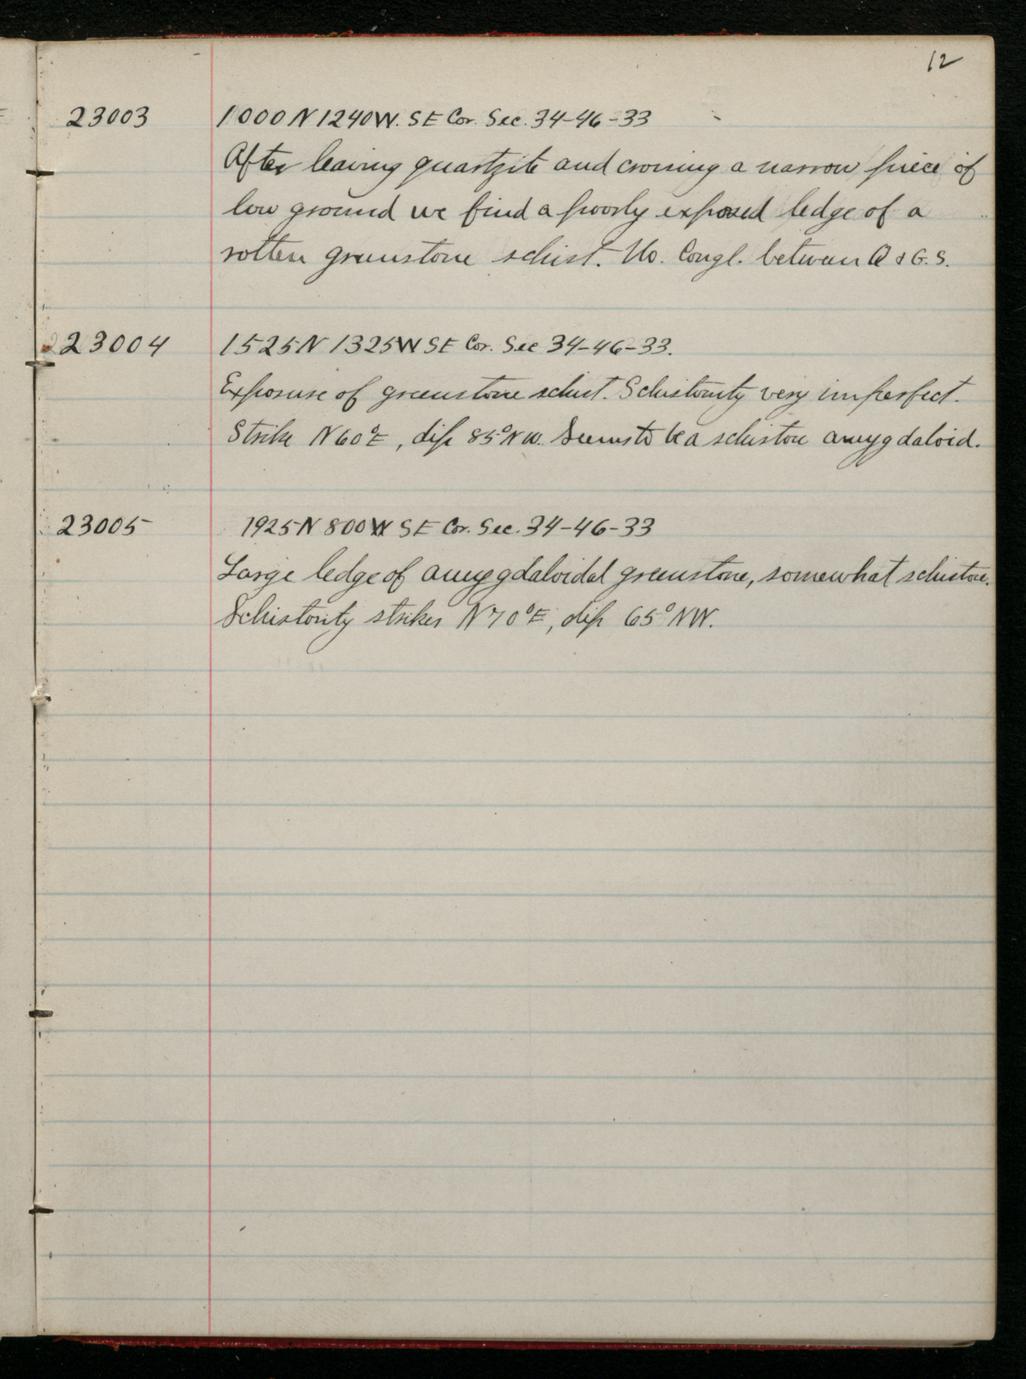 12
23003 1000 N 1240 W. SE Cor. Sec. 34-46-33
After leaving quartzite and crossing a narrow piece of
low ground we find a poorly exposed ledge of a
rotten greenstone schist. No. Congl. between Q & G.S.
23004 1525 N 1325 W SE Cor. Sec 34-46-33.
Exposure of greenstone schist. Schistosity very imperfect.
Strike N 60° E, dip 85° NW. Seems to be a schistose amygdaloid.
23005 1925 N 800 W SE Cor. Sec. 34-46-33
Large ledge of amygdaloidal greenstone, somewhat schistose.
Schistosity strikes N 70° E, dip 65° NW.